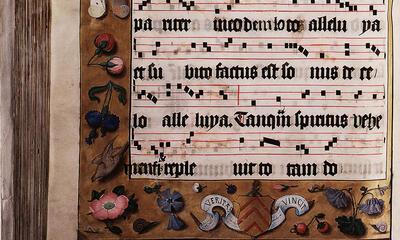 pariter in eodem loco allelu ya
et su bito factus est so nus de ce
lo alle luya. Tanqm spiritus vehe
mentis reple uit to tam do
VERITAS VINCIT